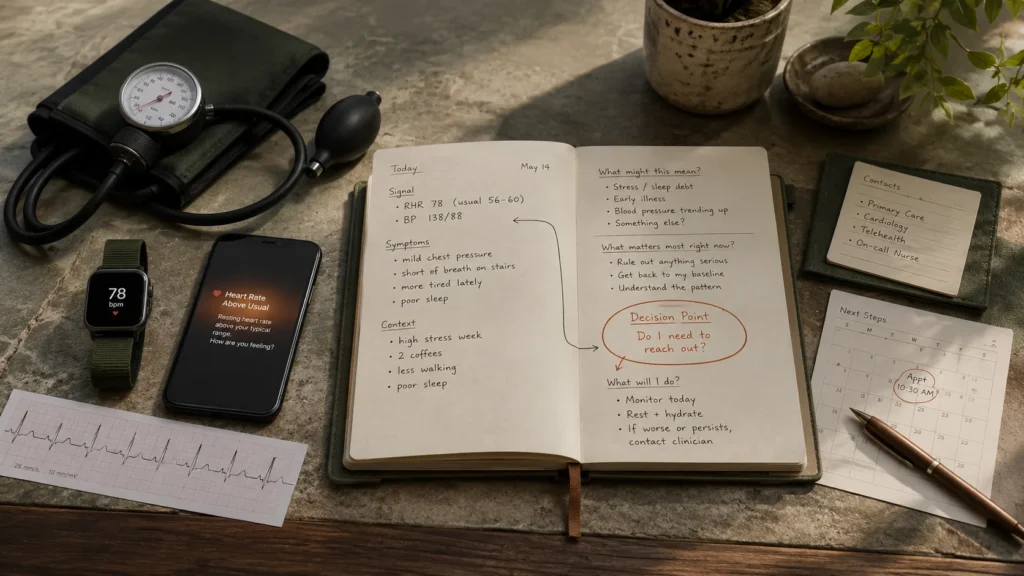 Today
May 14
Signal
• RHR 78 (usual 56-60)
• BP 138/88
Symptoms
• mild chest pressure
• short of breath on stairs
• more tired lately
• poor sleep
Context
• high stress week
• 2 coffees
• less walking
• poor sleep
What might this mean?
• Stress / sleep debt
• Early illness
• Blood pressure trending up
• Something else?
What matters most right now?
• Rule out anything serious
• Get back to my baseline
• Understand the pattern
Decision Point
Do I need to
reach out?
What will I do?
• Monitor today
• Rest + hydrate
• If worse or persists,
contact clinician
78
bpm
Heart Rate
Above Usual
Resting heart rate
above your typical
range.
How are you feeling?
Contacts
• Primary Care
• Cardiology
• Telehealth
• On-call Nurse
Next Steps
Appt
10:30 AM